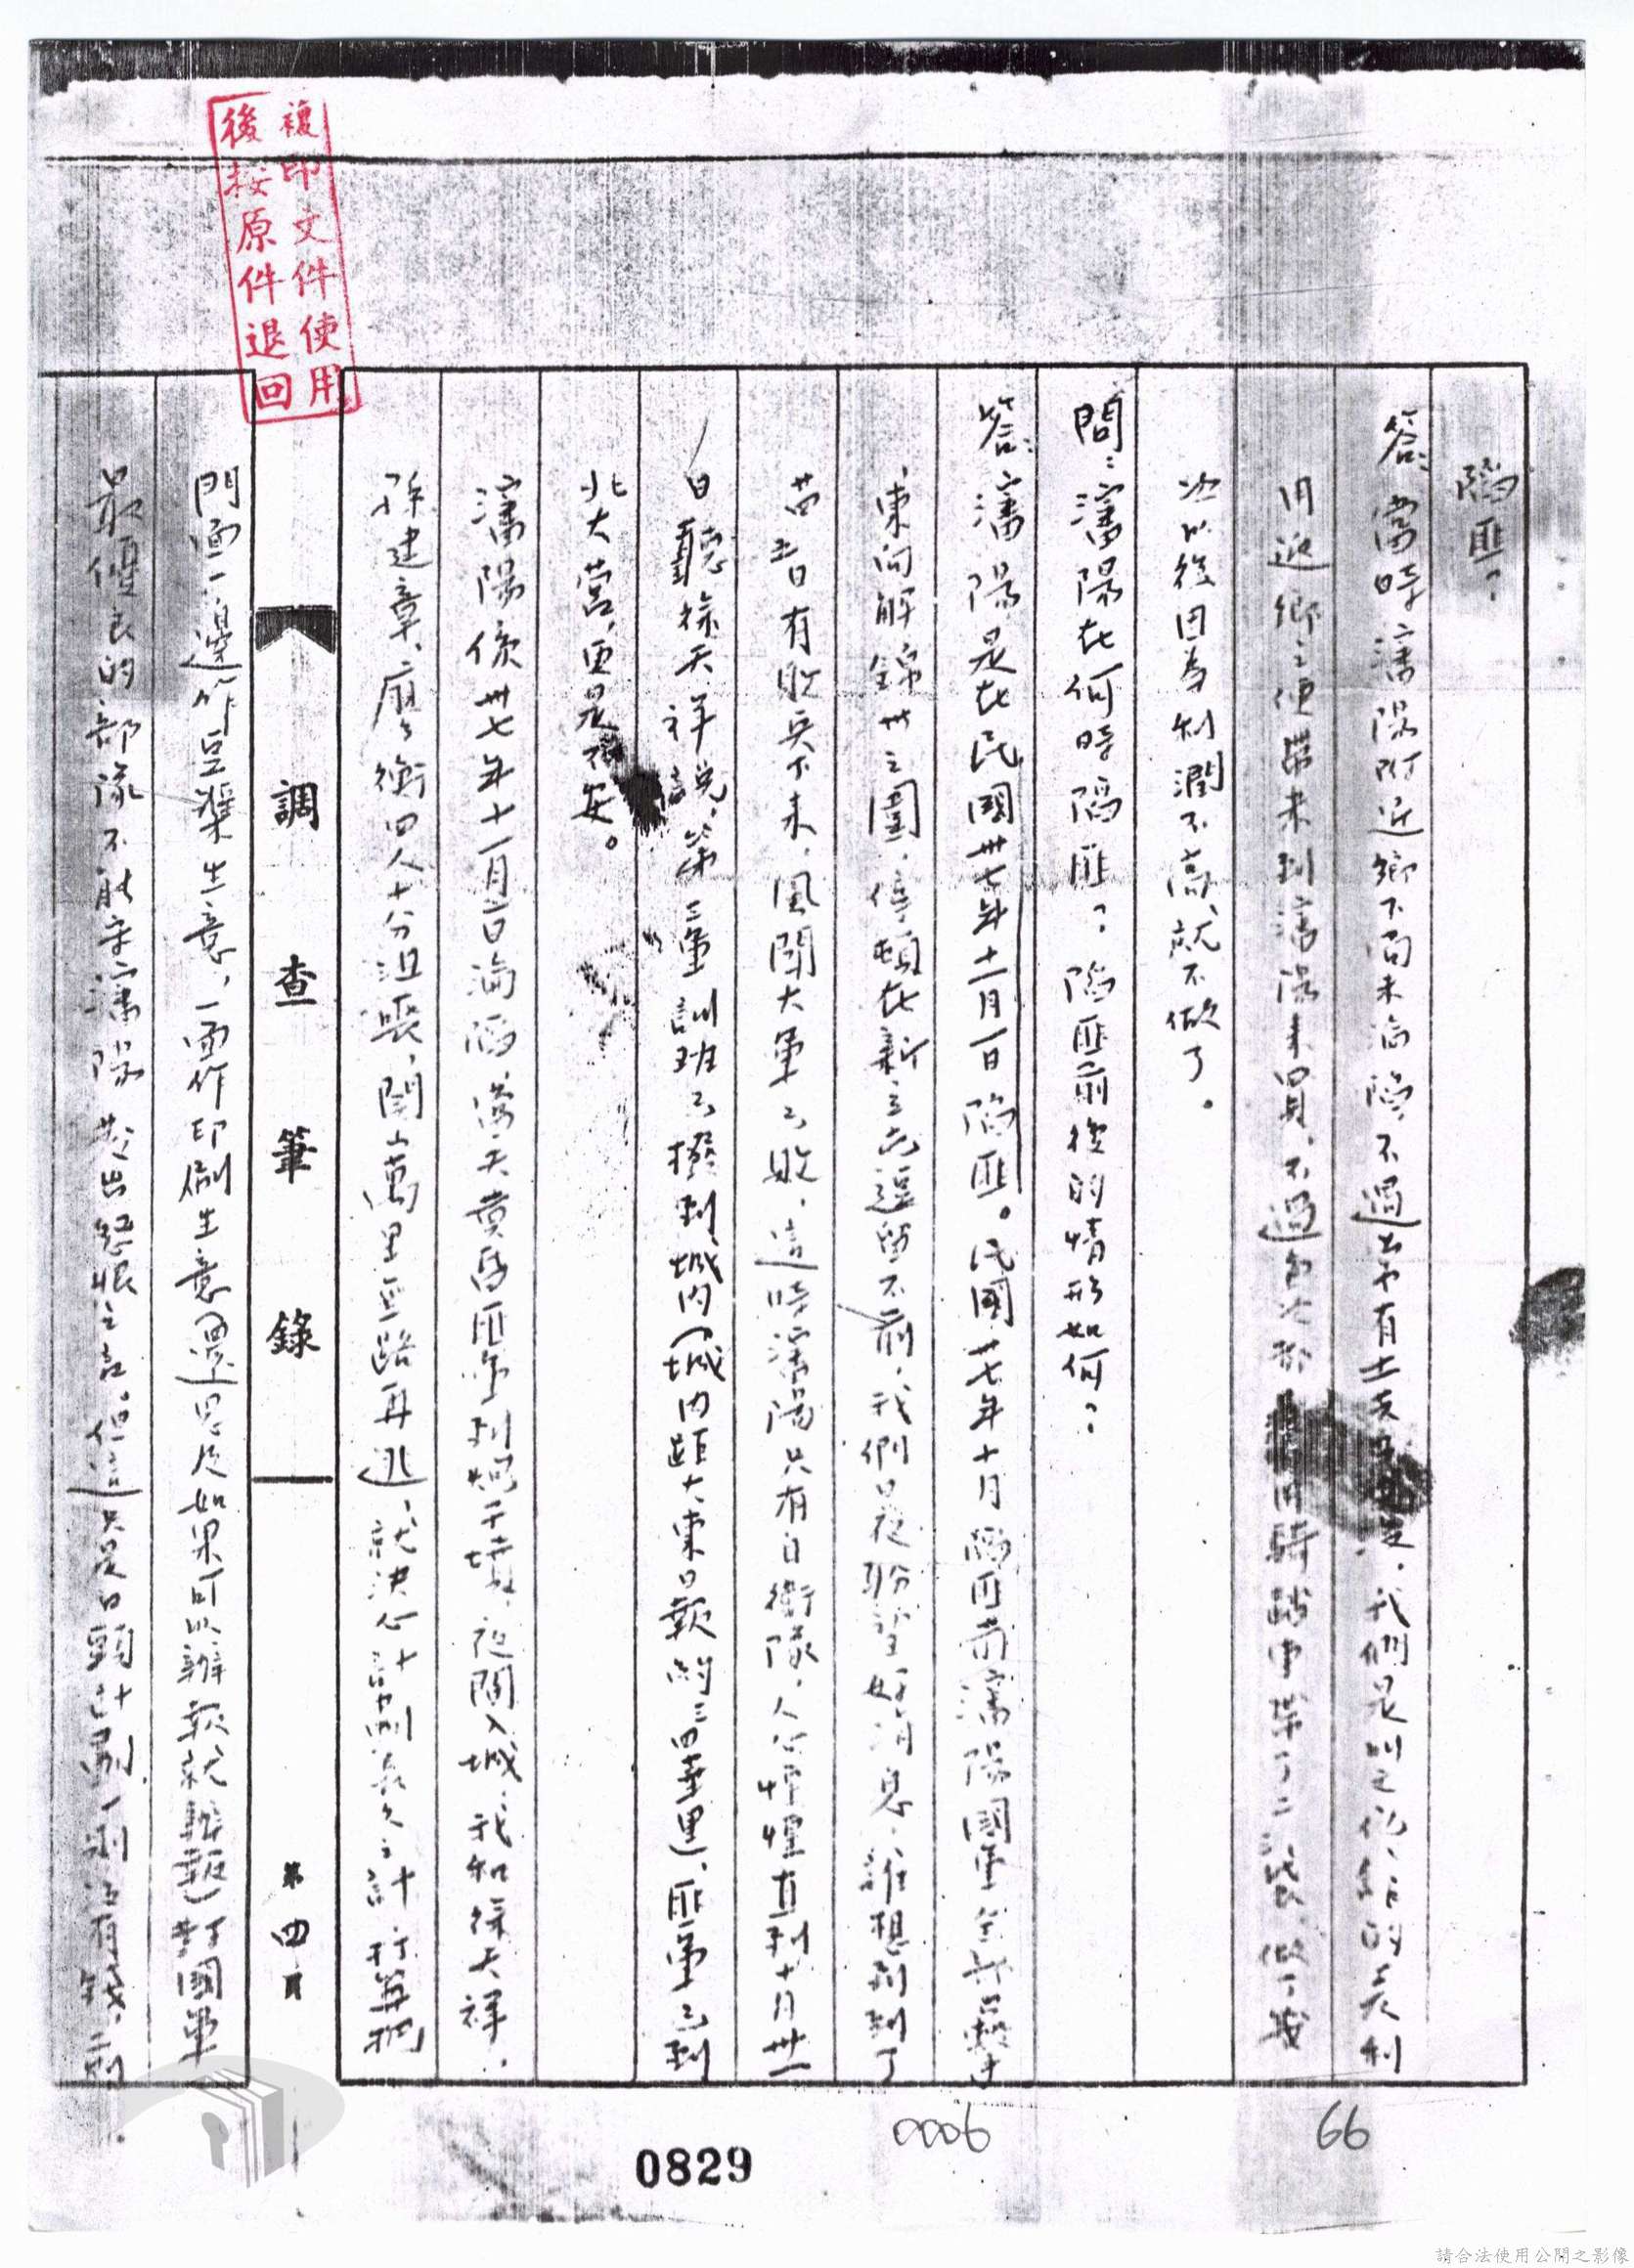 複印文件使用
後按原件退回
陷匪？
答：當時瀋陽附近鄉下尚未淪陷，不過當中有土共，我們是以之化給的夫利
用返鄉之便帶來到瀋陽來買，不過每次都用騎踏車帶了二袋，做了幾
次以後因為利潤不高，就不做了。
問：瀋陽在何時陷匪？陷匪前後的情形如何？
答：瀋陽是在民國卅七年十一月一日陷匪。民國卅七年十月陷匪前瀋陽國軍全部
東向解錦州之圍，停頓在新立屯逗留不前，我們日夜盼望好消息，誰想到到了
廿日有敗兵下來，風聞大軍已敗，這時瀋陽只有自衛隊，人心惶惶直到十月卅一
日聽徐天祥說，第三軍訓班已撥到城內（城內距大東日報約三四華里），匪軍已到
北大營，更是不安。
瀋陽係卅七年十一月一日淪陷，當天黃昏匪軍到，夜間入城，我和徐天祥、
孫建章、廖衡四人十分沮喪，關山萬里無路再逃，就決心計劃長久之計，打算把
調查筆錄 第四頁
門面一邊作豆漿生意，一面作印刷生意（還思及如果可以辦報就辦報）對國軍
最優良的部隊不能守瀋陽發出怨恨之言。但這只是口頭計劃，一則沒有錢，二則
66
0006
0829
請合法使用公開之影像